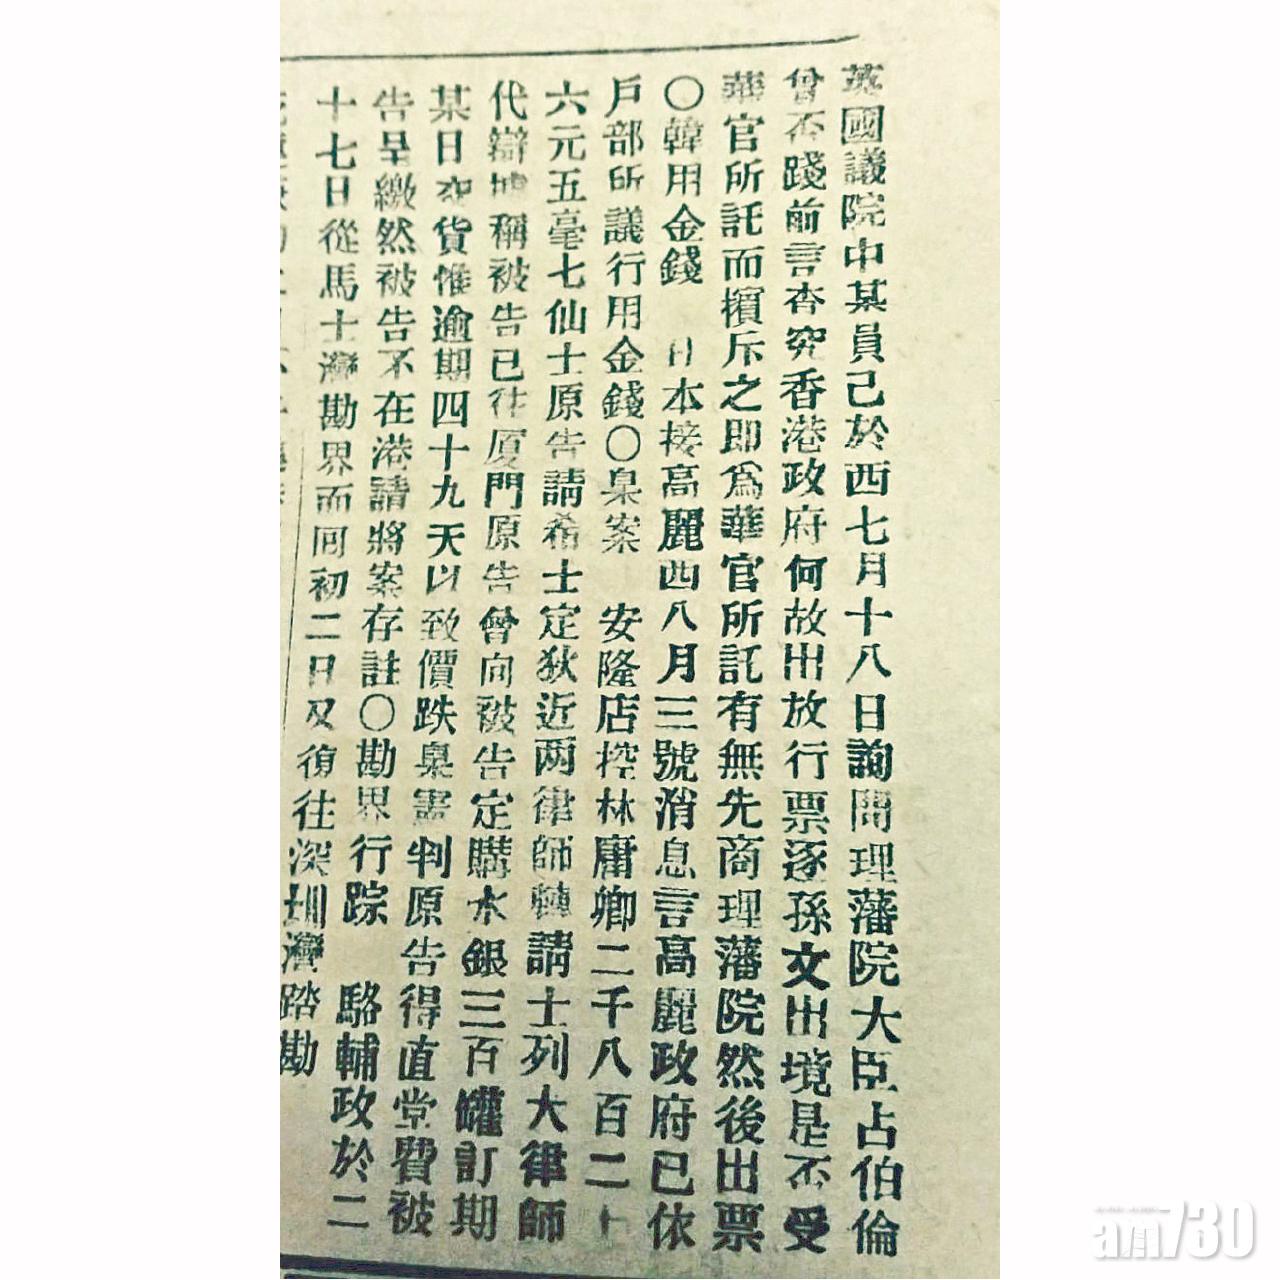 英國議院中某員己於西七月十八日詢問理藩院大臣占伯倫
曾否踐前言查究香港政府何故出放行票逐孫文出境是否受
華官所託而擯斥之即為華官所託有無先商理藩院然後出票
〇韓用金錢 日本接高麗西八月三號消息言高麗政府已依
戶部所議行用金錢〇臬案 安隆店控林庸卿二千八百二十
六元五毫七仙士原告請希士定狄近两律師轉請士列大律師
代辯據稱被告已往厦門原告曾向被告定購水銀三百罐訂期
某日交貨惟逾期四十九天以致價跌臬憲判原告得直堂費被
告呈繳然被告不在港請將案存註〇勘界行踪 駱輔政於二
十七日從馬士灣勘界而回初二日又復往深圳灣踏勘
am730